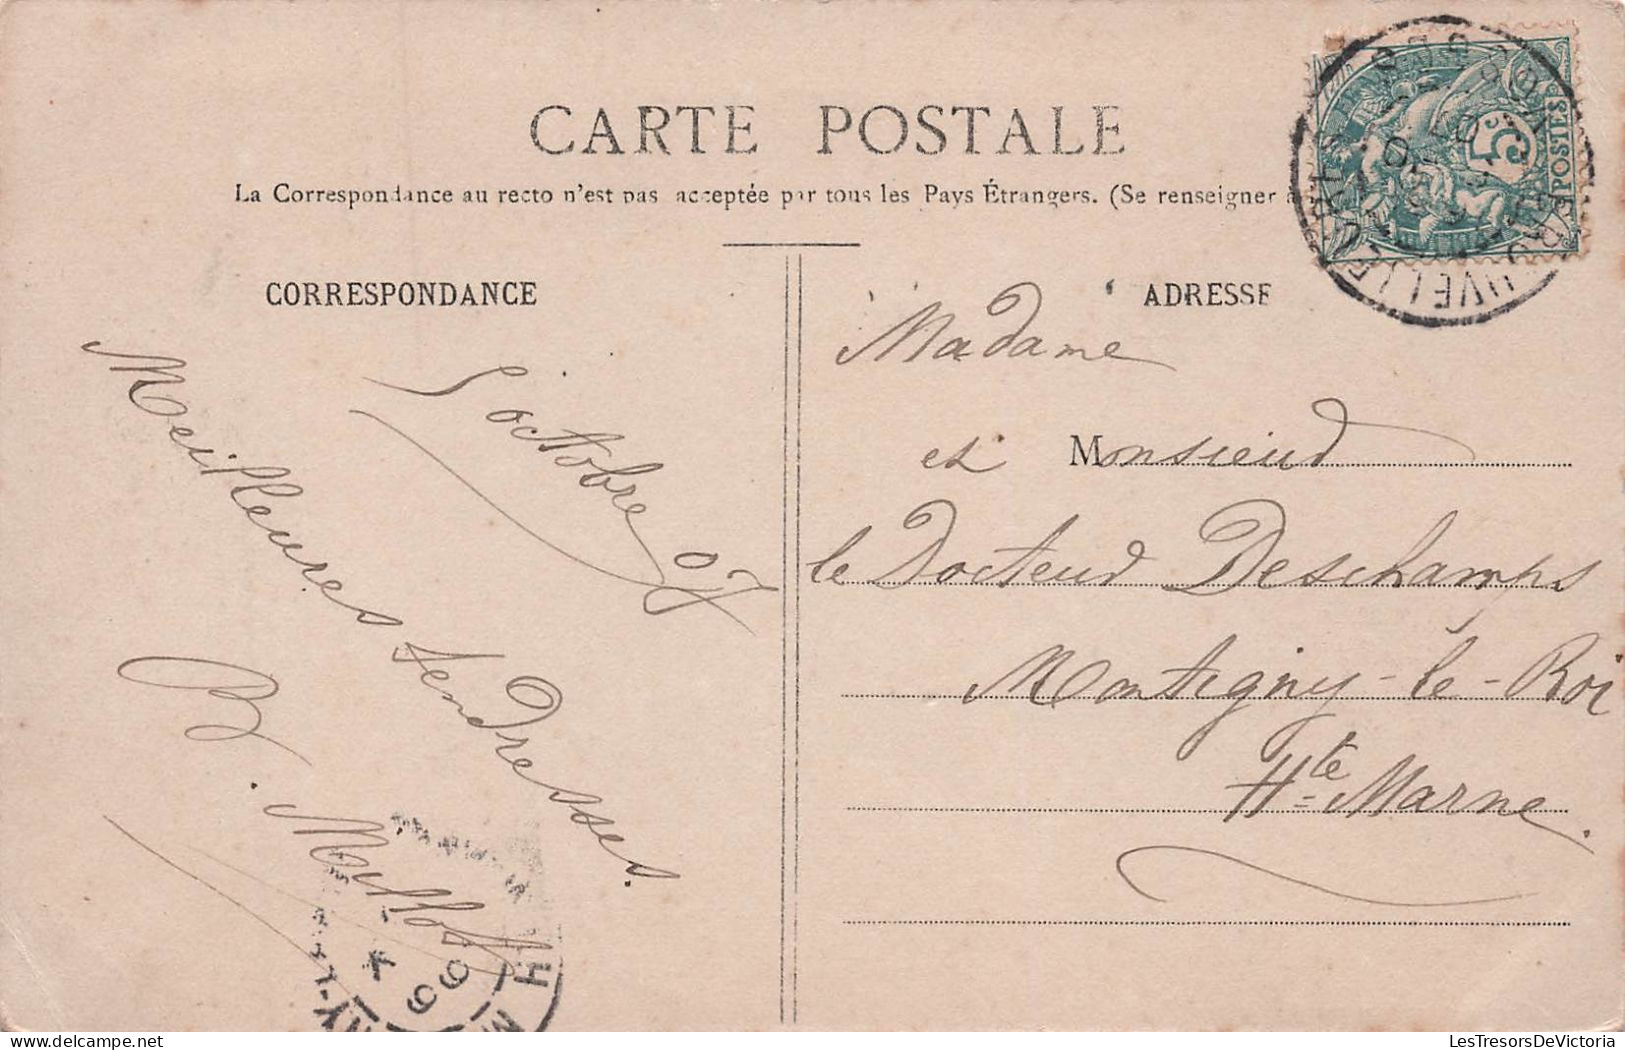 CARTE POSTALE
La Correspondance au recto n'est pas acceptée par tous les Pays Étrangers. (Se renseigner à
CORRESPONDANCE
5 octobre 07
Meilleures tendresses.
B. Millot
ADRESSE
Madame
et Monsieur
le Docteur Deschamps
Montigny-le-Roi
Hte Marne.
5
POSTES
LesTresorsDeVictoria